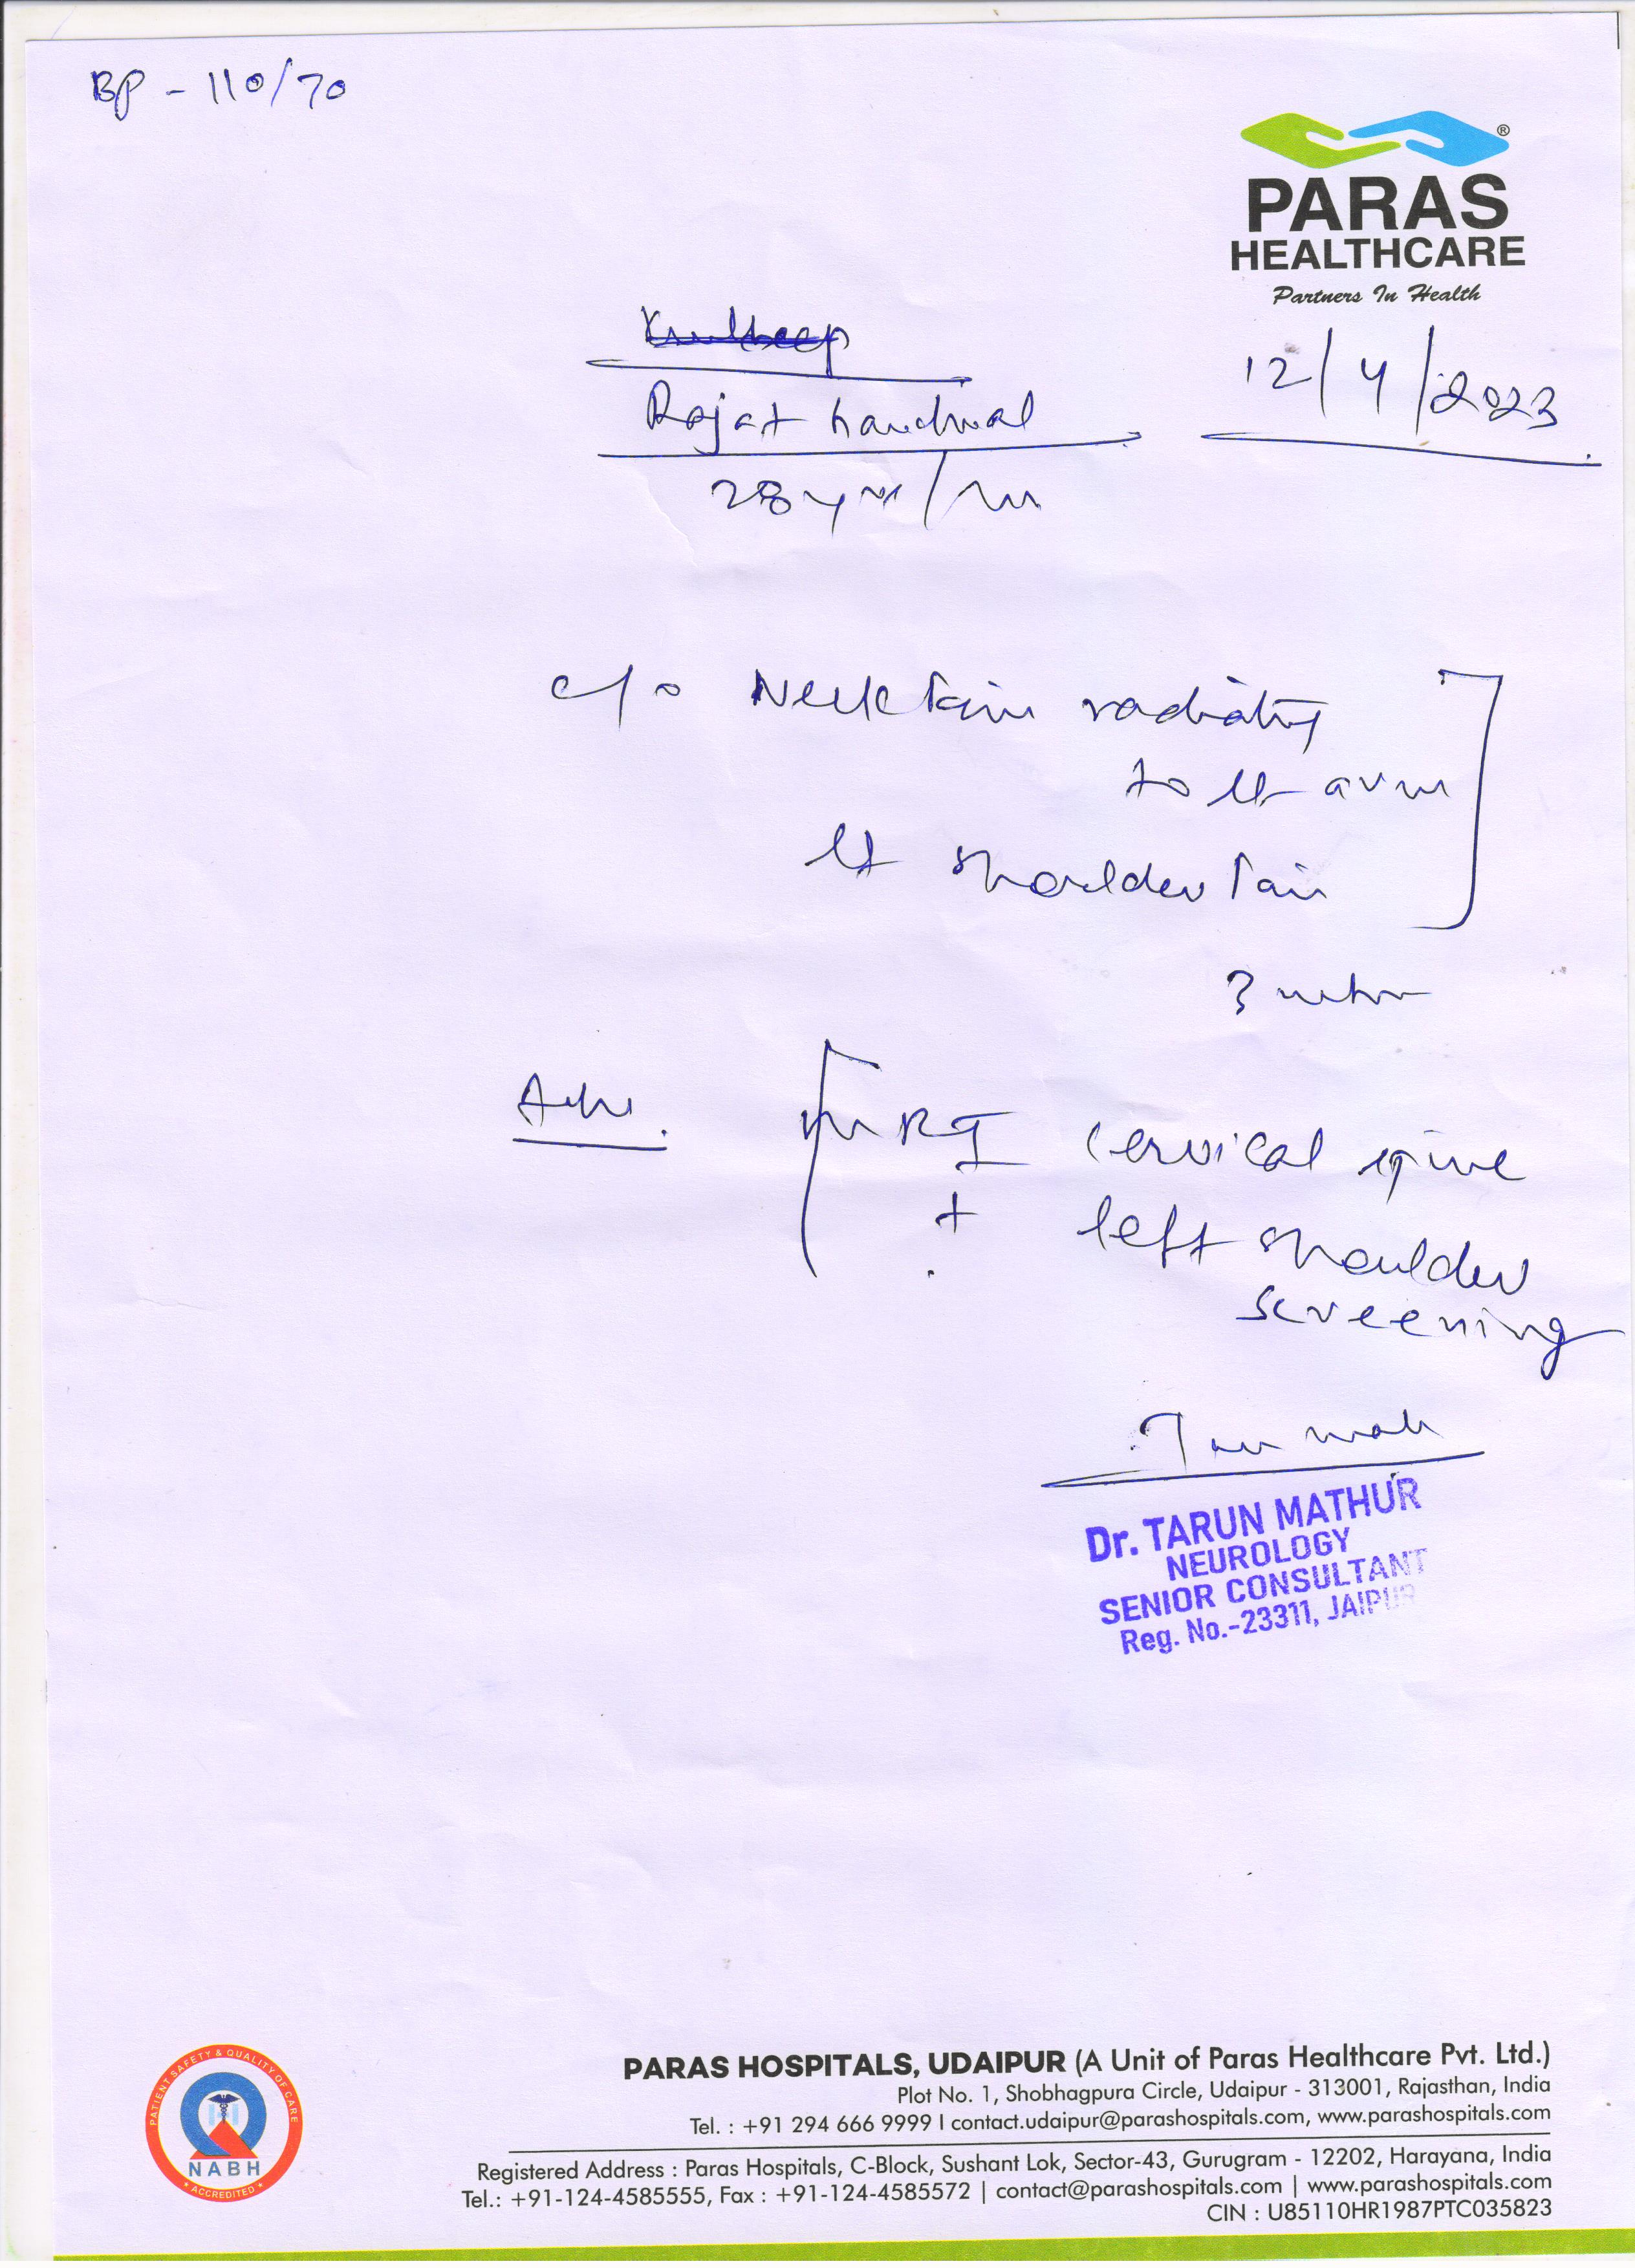 BP - 110/70
PARAS
HEALTHCARE
Partners In Health
12/4/2023
Rajat
28 yrs/m
c/o Neck Pain radiating
to lt arm
lt shoulder Pain
Adv.
MRI cervical spine
+ left shoulder
screening
Dr. TARUN MATHUR
NEUROLOGY
SENIOR CONSULTANT
Reg. No.-23311, JAIPUR
PATIENT SAFETY & QUALITY OF CARE
NABH
ACCREDITED
PARAS HOSPITALS, UDAIPUR (A Unit of Paras Healthcare Pvt. Ltd.)
Plot No. 1, Shobhagpura Circle, Udaipur - 313001, Rajasthan, India
Tel. : +91 294 666 9999 I contact.udaipur@parashospitals.com, www.parashospitals.com
Registered Address : Paras Hospitals, C-Block, Sushant Lok, Sector-43, Gurugram - 12202, Harayana, India
Tel.: +91-124-4585555, Fax : +91-124-4585572 | contact@parashospitals.com | www.parashospitals.com
CIN : U85110HR1987PTC035823